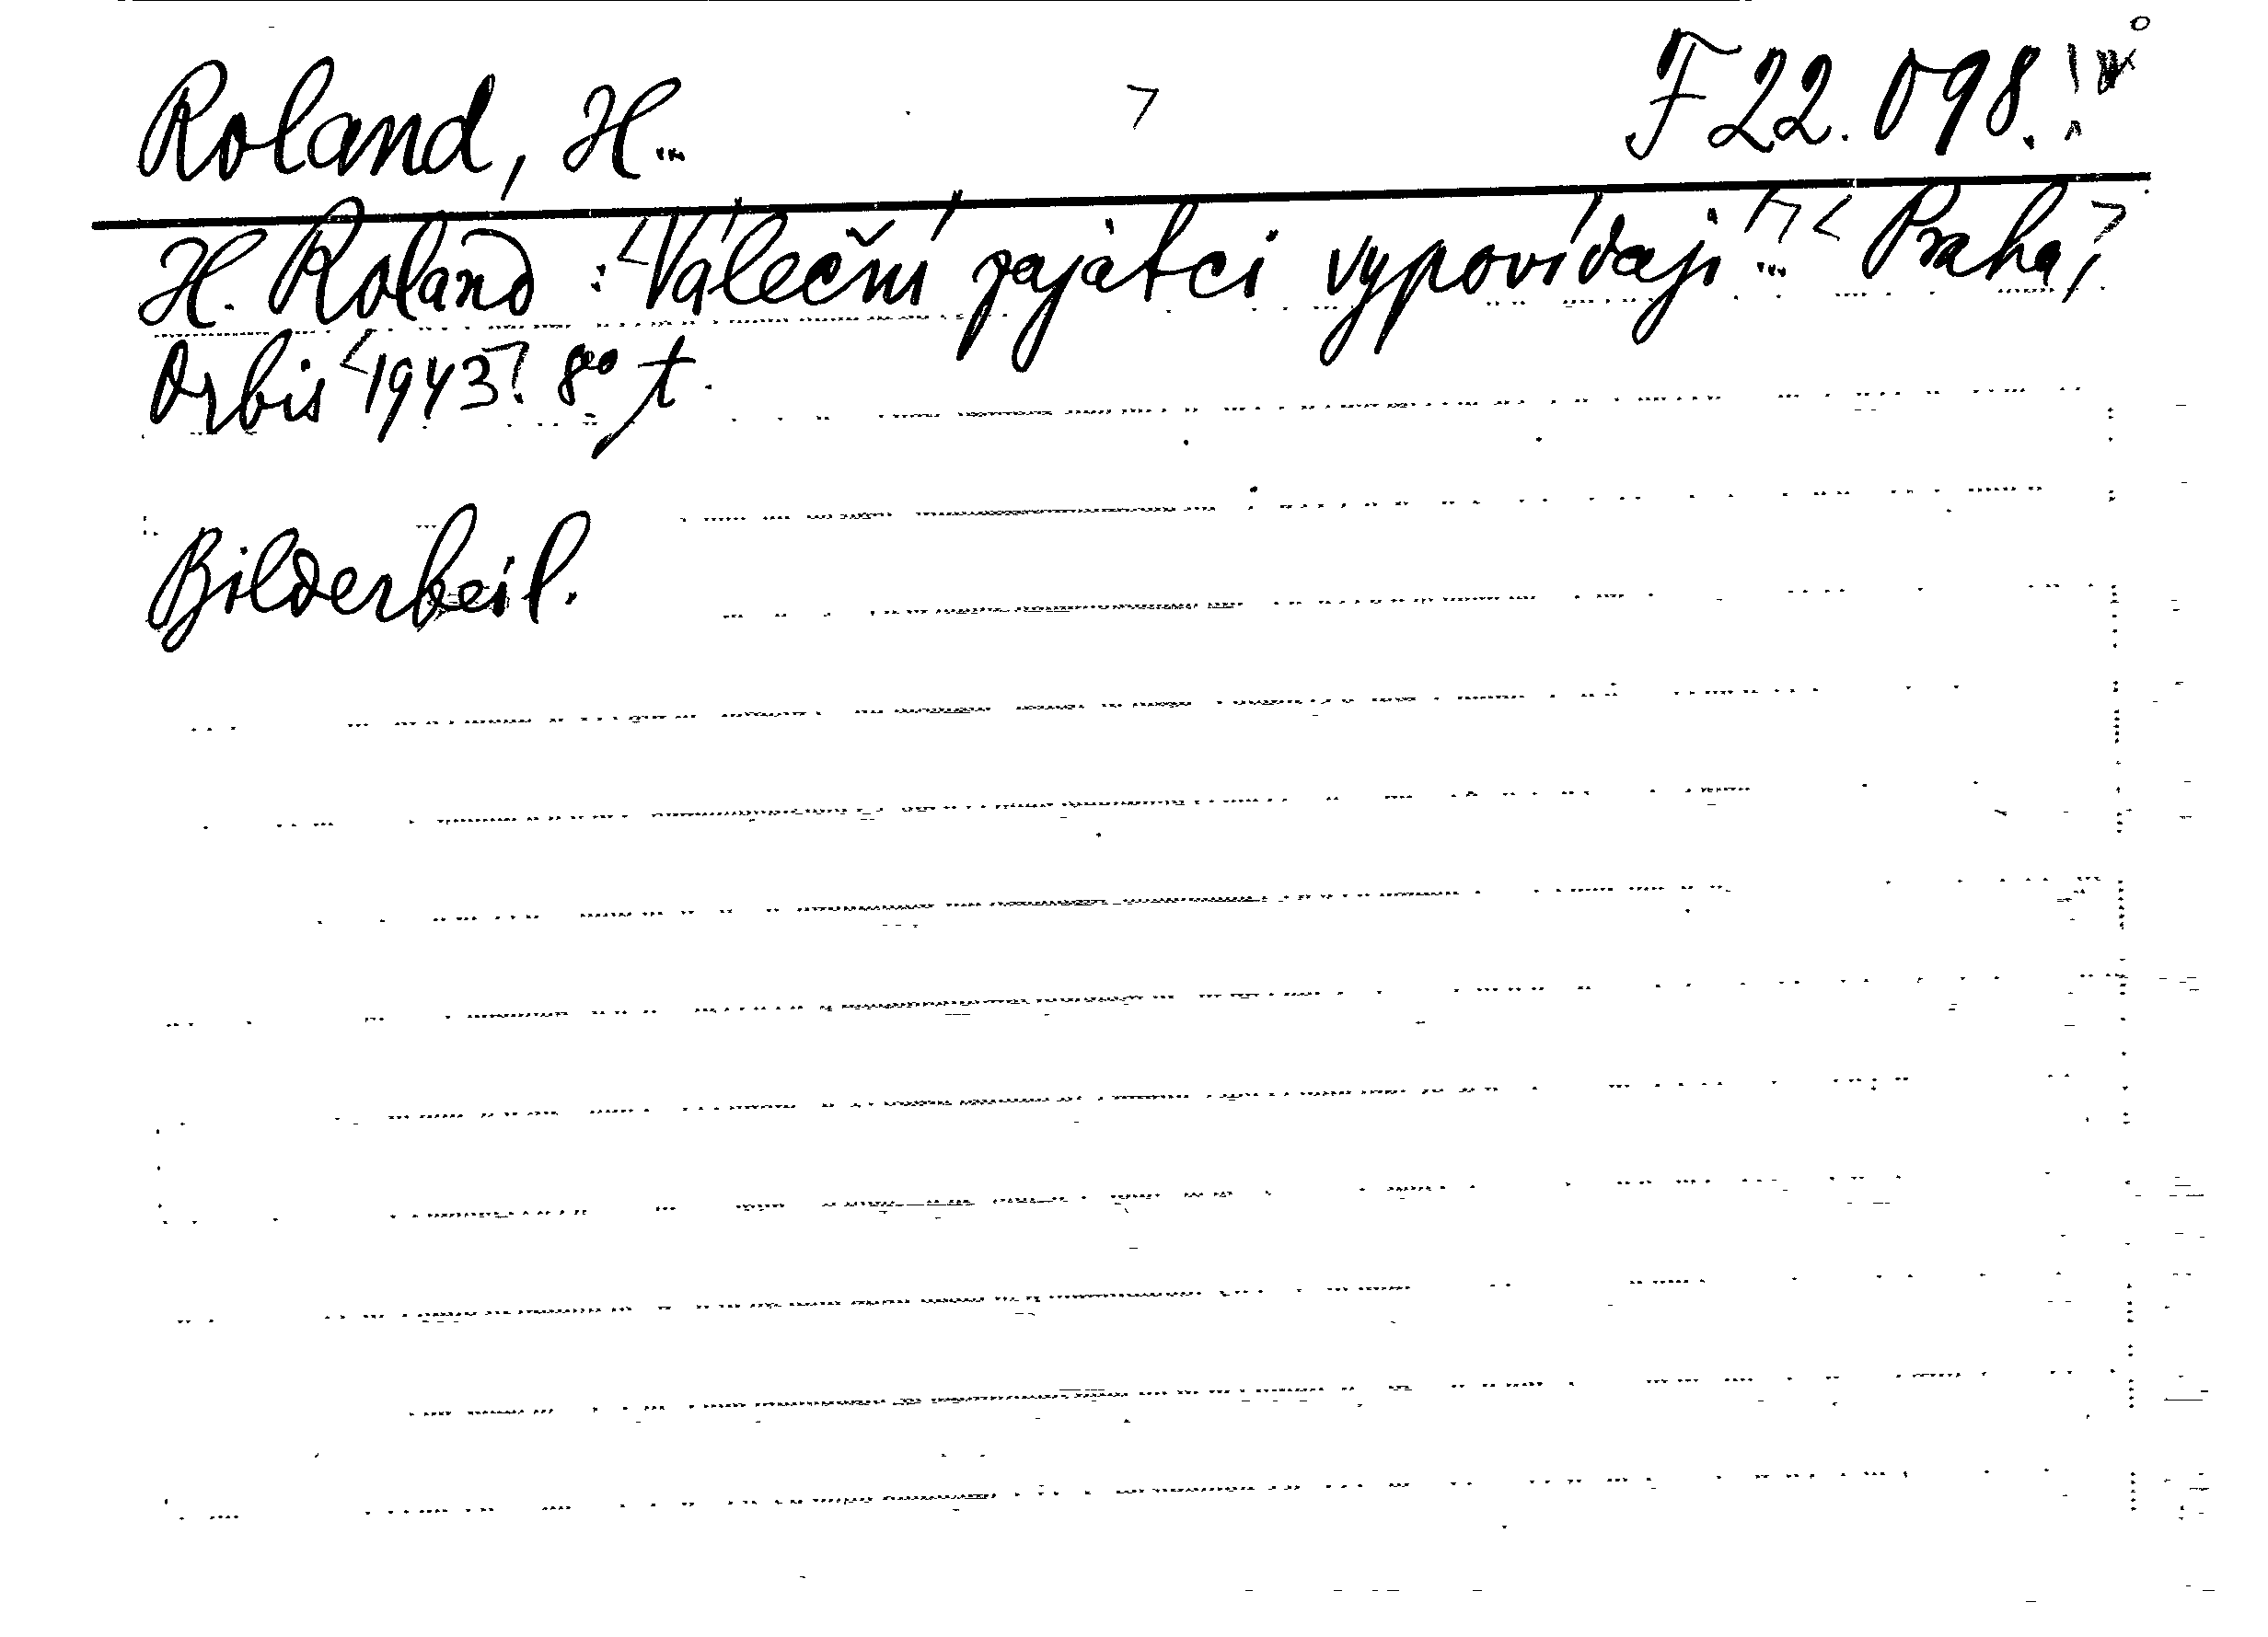 Roland, H... F 22.098.
H. Roland : <Váleční zajatci vypovídají...> <Praha,>
Orbis <1943>. 8° t.
Bilderbeil.